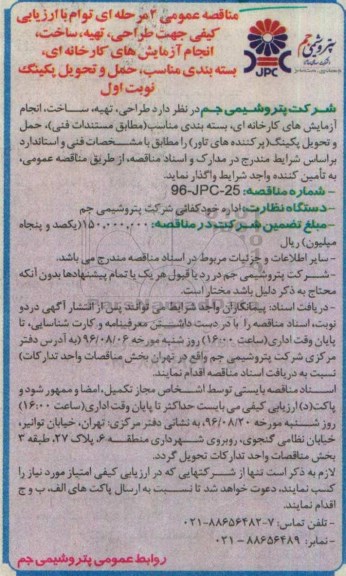 مناقصه عمومی ۲ مرحله ای توام با ارزیابی
کیفی جهت طراحی، تهیه، ساخت،
انجام آزمایش های کارخانه ای،
بسته بندی مناسب، حمل و تحویل پکینگ
نوبت اول
پتروشیمی جم
JPC
شرکت پتروشیمی جم در نظر دارد طراحی، تهیه، ساخت، انجام
آزمایش های کارخانه ای، بسته بندی مناسب(مطابق مستندات فنی)، حمل
و تحویل پکینگ(پر کننده های تاور) را مطابق با مشخصات فنی و استاندارد
براساس شرایط مندرج در مدارک و اسناد مناقصه، از طریق مناقصه عمومی،
به تأمین کننده واجد شرایط واگذار نماید.
- شماره مناقصه: 96-JPC-25
- دستگاه نظارت: اداره خودکفائی شرکت پتروشیمی جم
- مبلغ تضمین شرکت در مناقصه: ۱۵۰,۰۰۰,۰۰۰ (یکصد و پنجاه
میلیون) ریال
- سایر اطلاعات و جزئیات مربوط در اسناد مناقصه مندرج می باشد.
- شرکت پتروشیمی جم در رد یا قبول هر یک یا تمام پیشنهادها بدون آنکه
محتاج به ذکر دلیل باشد مختار است.
- دریافت اسناد: پیمانکاران واجد شرایط می توانند پس از انتشار آگهی در دو
نوبت، اسناد مناقصه را با در دست داشتن معرفینامه و کارت شناسایی، تا
پایان وقت اداری(ساعت ۱۶:۰۰) روز شنبه مورخه ۹۶/۰۸/۰۶ (به آدرس دفتر
مرکزی شرکت پتروشیمی جم واقع در تهران بخش مناقصات واحد تدارکات)
نسبت به دریافت اسناد مناقصه اقدام نمایند.
اسناد مناقصه بایستی توسط اشخاص مجاز تکمیل، امضا و ممهور شود و
پاکت(د) ارزیابی کیفی می بایست حداکثر تا پایان وقت اداری(ساعت ۱۶:۰۰)
روز شنبه مورخه ۹۶/۰۸/۲۰، به نشانی دفتر مرکزی: تهران، خیابان توانیر،
خیابان نظامی گنجوی، روبروی شهرداری منطقه ۶، پلاک ۲۷، طبقه ۳
بخش مناقصات واحد تدارکات تحویل گردد.
لازم به ذکر است تنها از شرکتهایی که در ارزیابی کیفی امتیاز مورد نیاز را
کسب نمایند، دعوت خواهد شد تا نسبت به ارسال پاکت های الف، ب و ج
اقدام نمایند.
- تلفن تماس: ۷-۸۸۶۵۶۴۸۲-۰۲۱
- نمابر: ۸۸۶۵۶۴۸۹ - ۰۲۱
روابط عمومی پتروشیمی جم